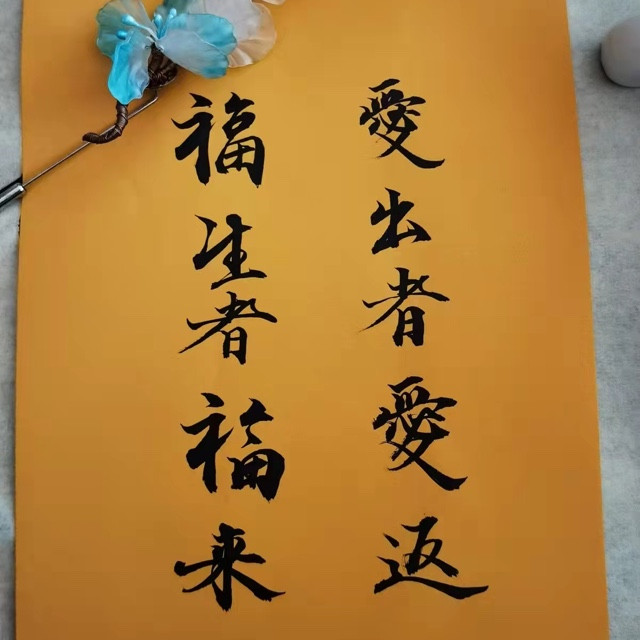 愛出者愛返
福生者福来